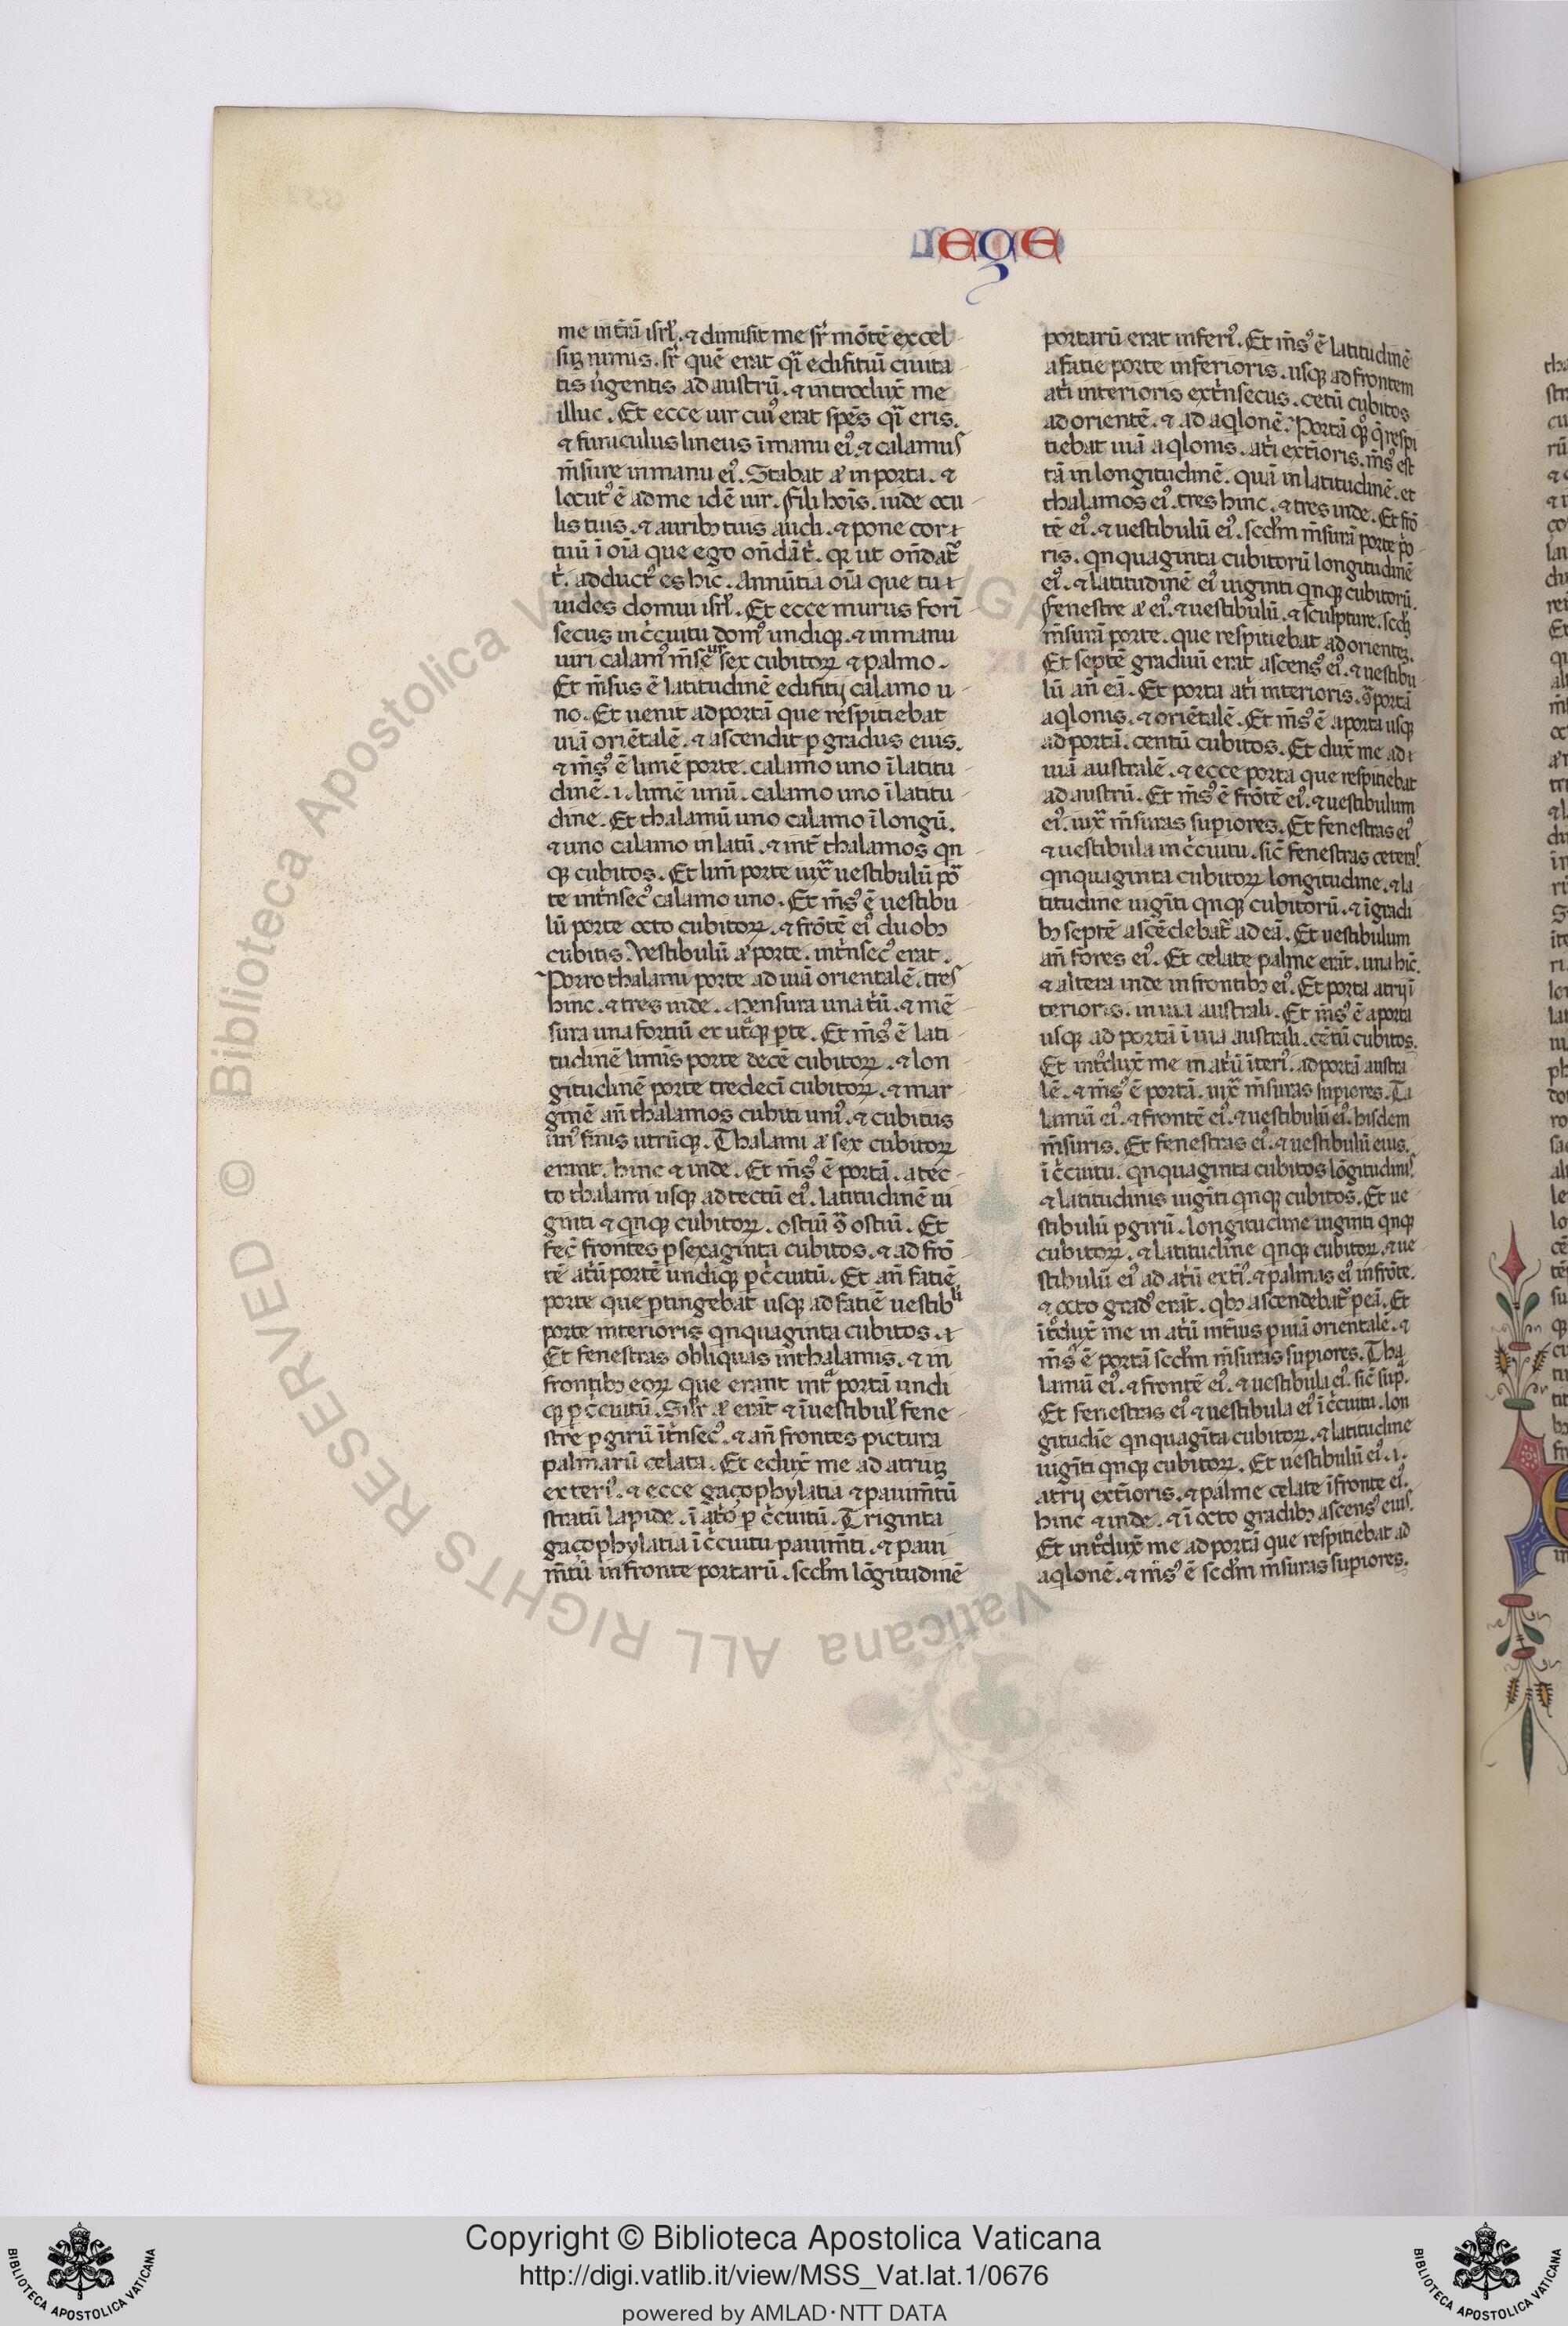 ege
me in t̄rā isrl̄. ⁊ dimisit me sr̄ mōtē excel
suꝫ nimis. sr̄ quē erat q̄i edifitiū ciuita
tis ūgentis ad austrū. ⁊ introdux̄ me
illuc. Et ecce uir cui᷒ erat spēs q̄i eris.
⁊ funiculus lineus ī manu ei᷒. ⁊ calamus
m̄sure in manu ei᷒. Stabat aͥ in porta. ⁊
locut᷒ ē ad me idē uir. Fili hoīs. uide ocu
lis tuis. ⁊ auribꝫ tuis audi. ⁊ pone cor
tuū ī oīa que ego on̄dā t̄. qꝛ ut on̄dat᷑
t̄. adduct᷒ es hic. Annūtia oīa que tu
uides domui isrl̄. Et ecce murus forī
secus in c̄cuitu dom᷒ undiqꝫ. ⁊ in manu
uiri calam᷒ m̄sē ur̄ sex cubitoꝝ ⁊ palmo.
Et m̄sus ē latitudinē edifitij calamo u
no. Et uenit ad portā que respitiebat
uiā oriētalē. ⁊ ascendit p gradus eius.
⁊ m̄s᷒ ē limē porte. calamo uno ī latitu
dinē. i. limē unū. calamo uno ī latitu
dine. Et thalamū uno calamo ī longū.
⁊ uno calamo in latū. ⁊ int̄ thalamos qn
qꝫ cubitos. Et lim̄ porte iux̄ uestibulū por
te int̄nsec᷒ calamo uno. Et m̄s᷒ ē uestibu
lū porte octo cubitoꝝ. ⁊ frōtē ei᷒ duobꝫ
cubitis. Vestibulū aͥ porte. int̄nsec᷒ erat.
Porro thalami porte ad uiā orientalē. tres
hinc. ⁊ tres inde. Mensura una t̄ū. ⁊ mē
sura una fortiū ex ut̄qꝫ pte. Et m̄s᷒ ē lati
tudinē limīs porte decē cubitoꝝ. ⁊ lon
gitudinē porte tredecī cubitoꝝ. ⁊ mar
ginē an̄ thalamos cubiti uni᷒. ⁊ cubitus
un᷒ finis utrūqꝫ. Thalami aͥ sex cubitoꝝ
erant. hinc ⁊ inde. Et m̄s᷒ ē portā. a tec
to thalami usqꝫ ad tectū ei᷒. latitudinē ui
ginti ⁊ qnqꝫ cubitoꝝ. ostiū ꝯ̄ ostiū. Et
fec̄ frontes p sexaginta cubitos. ⁊ ad frō
tē at̄ū portē undiqꝫ p c̄cuitū. Et an̄ fatiē
porte que ptingebat usqꝫ ad fatiē uestibuli
porte interioris qnquaginta cubitos.
Et fenestras obliquas in thalamis. ⁊ in
frontibꝫ eoꝝ que erant int̄ portā undi
qꝫ p c̄cuitū. Silr̄ aͥ erāt ⁊ ī uestibul̄ fene
stre p girū īt̄nsec᷒. ⁊ an̄ frontes pictura
palmarū celata. Et edux̄ me ad atriuꝫ
exteri᷒. ⁊ ecce gaçophylatia ⁊ pauim̄tū
stratū lapide. ī at̄o p c̄cuitū. Triginta
gaçophylatia ī c̄cuitu pauim̄ti. ⁊ paui
m̄tū in fronte portarū. scd̄m lōgitudinē
portarū erat inferi᷒. Et m̄s᷒ ē latitudinē
a fatie porte inferioris. usqꝫ ad frontem
at̄i interioris ext̄nsecus. cētū cubitos
ad orientē. ⁊ ad aqlonē. Portā qꝫ q̄ respi
tiebat uiā aqlonis. at̄i ext̄ioris. m̄s᷒ est
tā in longitudinē. quā in latitudinē. et
thalamos ei᷒. tres hinc. ⁊ tres inde. Et frō
tē ei᷒. ⁊ uestibulū ei᷒. scd̄m m̄surā porte po
ris. qnquaginta cubitorū longitudinē
ei᷒. ⁊ latitudinē ei᷒ uiginti qnqꝫ cubitorū.
Fenestre aͥ ei᷒. ⁊ uestibulū. ⁊ sculpture. scd̄ꝫ
m̄surā porte. que respitiebat ad orienteꝫ.
Et septē graduū erat ascens᷒ ei᷒. ⁊ uestibu
lū an̄ eā. Et porta at̄i interioris. ꝯ̄ portā
aqlonis. ⁊ oriētalē. Et m̄s᷒ ē a porta usqꝫ
ad portā. centū cubitos. Et dux̄ me ad
uiā australē. ⁊ ecce porta que respitiebat
ad austrū. Et m̄s᷒ ē frōtē ei᷒. ⁊ uestibulum
ei᷒. iux̄ m̄suras supiores. Et fenestras ei᷒
⁊ uestibula in c̄cuitu. sic̄ fenestras ceteras.
qnquaginta cubitoꝝ longitudine. ⁊ la
titudine uigīti qnqꝫ cubitorū. ⁊ ī gradi
bꝫ septē ascēdebat᷑ ad eā. Et uestibulum
an̄ fores ei᷒. Et celate palme erāt. una hīc.
⁊ altera inde in frontibꝫ ei᷒. Et porta atrij ī
terioris. in uia australi. Et m̄s᷒ ē a porta
usqꝫ ad portā ī uia australi. cētū cubitos.
Et int̄dux̄ me in at̄ū īteri᷒. ad portā austra
lē. ⁊ m̄s᷒ ē portā. iux̄ m̄suras supiores. Ta
lamū ei᷒. ⁊ frontē ei᷒. ⁊ uestibulū ei᷒. hisdem
m̄suris. Et fenestras ei᷒. ⁊ uestibulū eius.
ī c̄cuitu. qnquaginta cubitos lōgitudinis.
⁊ latitudinis uigīti qnqꝫ cubitos. Et ue
stibulū p girū. longitudine uiginti qnqꝫ
cubitoꝝ. ⁊ latitudīne qnqꝫ cubitoꝝ. ⁊ ue
stibulū ei᷒ ad at̄ū ext̄i᷒. ⁊ palmas ei᷒ in frōte.
⁊ octo grad᷒ erāt. qbꝫ ascendebat᷑ p eā. Et
īt̄dux̄ me in at̄ū int̄ius p uiā orientalē. ⁊
m̄s᷒ ē portā scd̄m m̄suras supiores. Tha
lamū ei᷒. ⁊ frontē ei᷒. ⁊ uestibula ei᷒. sic̄ sup̄.
Et fenestras ei᷒ ⁊ uestibula ei᷒ ī c̄cuitu. lon
gitudīe qnquagīta cubitoꝝ. ⁊ latitudine
uigīti qnqꝫ cubitoꝝ. Et uestibulū ei᷒. i.
atrij ext̄ioris. ⁊ palme celate ī fronte ei᷒.
hinc ⁊ inde. ⁊ ī octo gradibꝫ ascens᷒ eius.
Et int̄dux̄ me ad portā que respitiebat ad
aqlonē. ⁊ m̄s᷒ ē scd̄m m̄suras supiores.
© Biblioteca Apostolica Vaticana ALL RIGHTS RESERVED
Copyright © Biblioteca Apostolica Vaticana
http://digi.vatlib.it/view/MSS_Vat.lat.1/0676
powered by AMLAD·NTT DATA
BIBLIOTECA APOSTOLICA VATICANA
BIBLIOTECA APOSTOLICA VATICANA